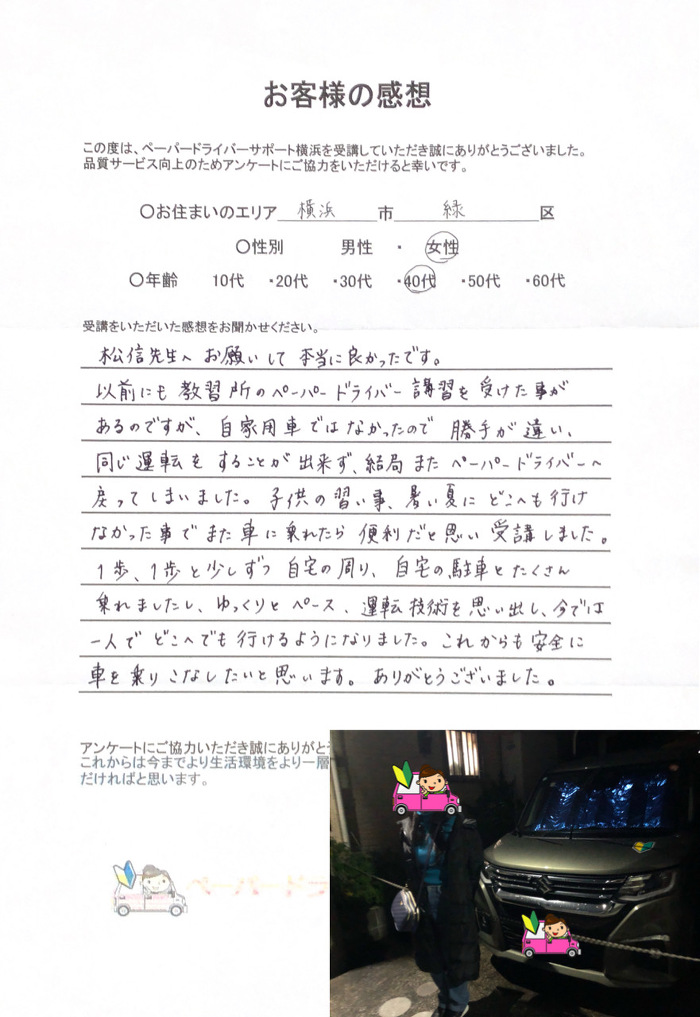 お客様の感想
この度は、ペーパードライバーサポート横浜を受講していただき誠にありがとうございました。
品質サービス向上のためアンケートにご協力をいただけると幸いです。
〇お住まいのエリア 横浜 市 緑 区
〇性別 男性 ・ 女性
〇年齢 10代 ・20代 ・30代 ・40代 ・50代 ・60代
受講をいただいた感想をお聞かせください。
松信先生へ お願いして 本当に良かったです。
以前にも 教習所のペーパードライバー 講習を 受けた事が
あるのですが、自家用車ではなかったので 勝手が違い、
同じ運転をすることが出来ず、結局また ペーパードライバーへ
戻ってしまいました。子供の習い事、暑い夏に どこへも行け
なかった事で また車に乗れたら 便利だと思い 受講しました。
1歩、1歩と少しずつ 自宅の周り、自宅の駐車と たくさん
乗れましたし、ゆっくりと ペース、運転技術を思い出し、今では
一人で どこへでも行けるようになりました。これからも安全に
車を乗りこなしたいと思います。ありがとうございました。
アンケートにご協力いただき誠にありがと
これからは今までより生活環境をより一層
だければと思います。
ペーパードラ